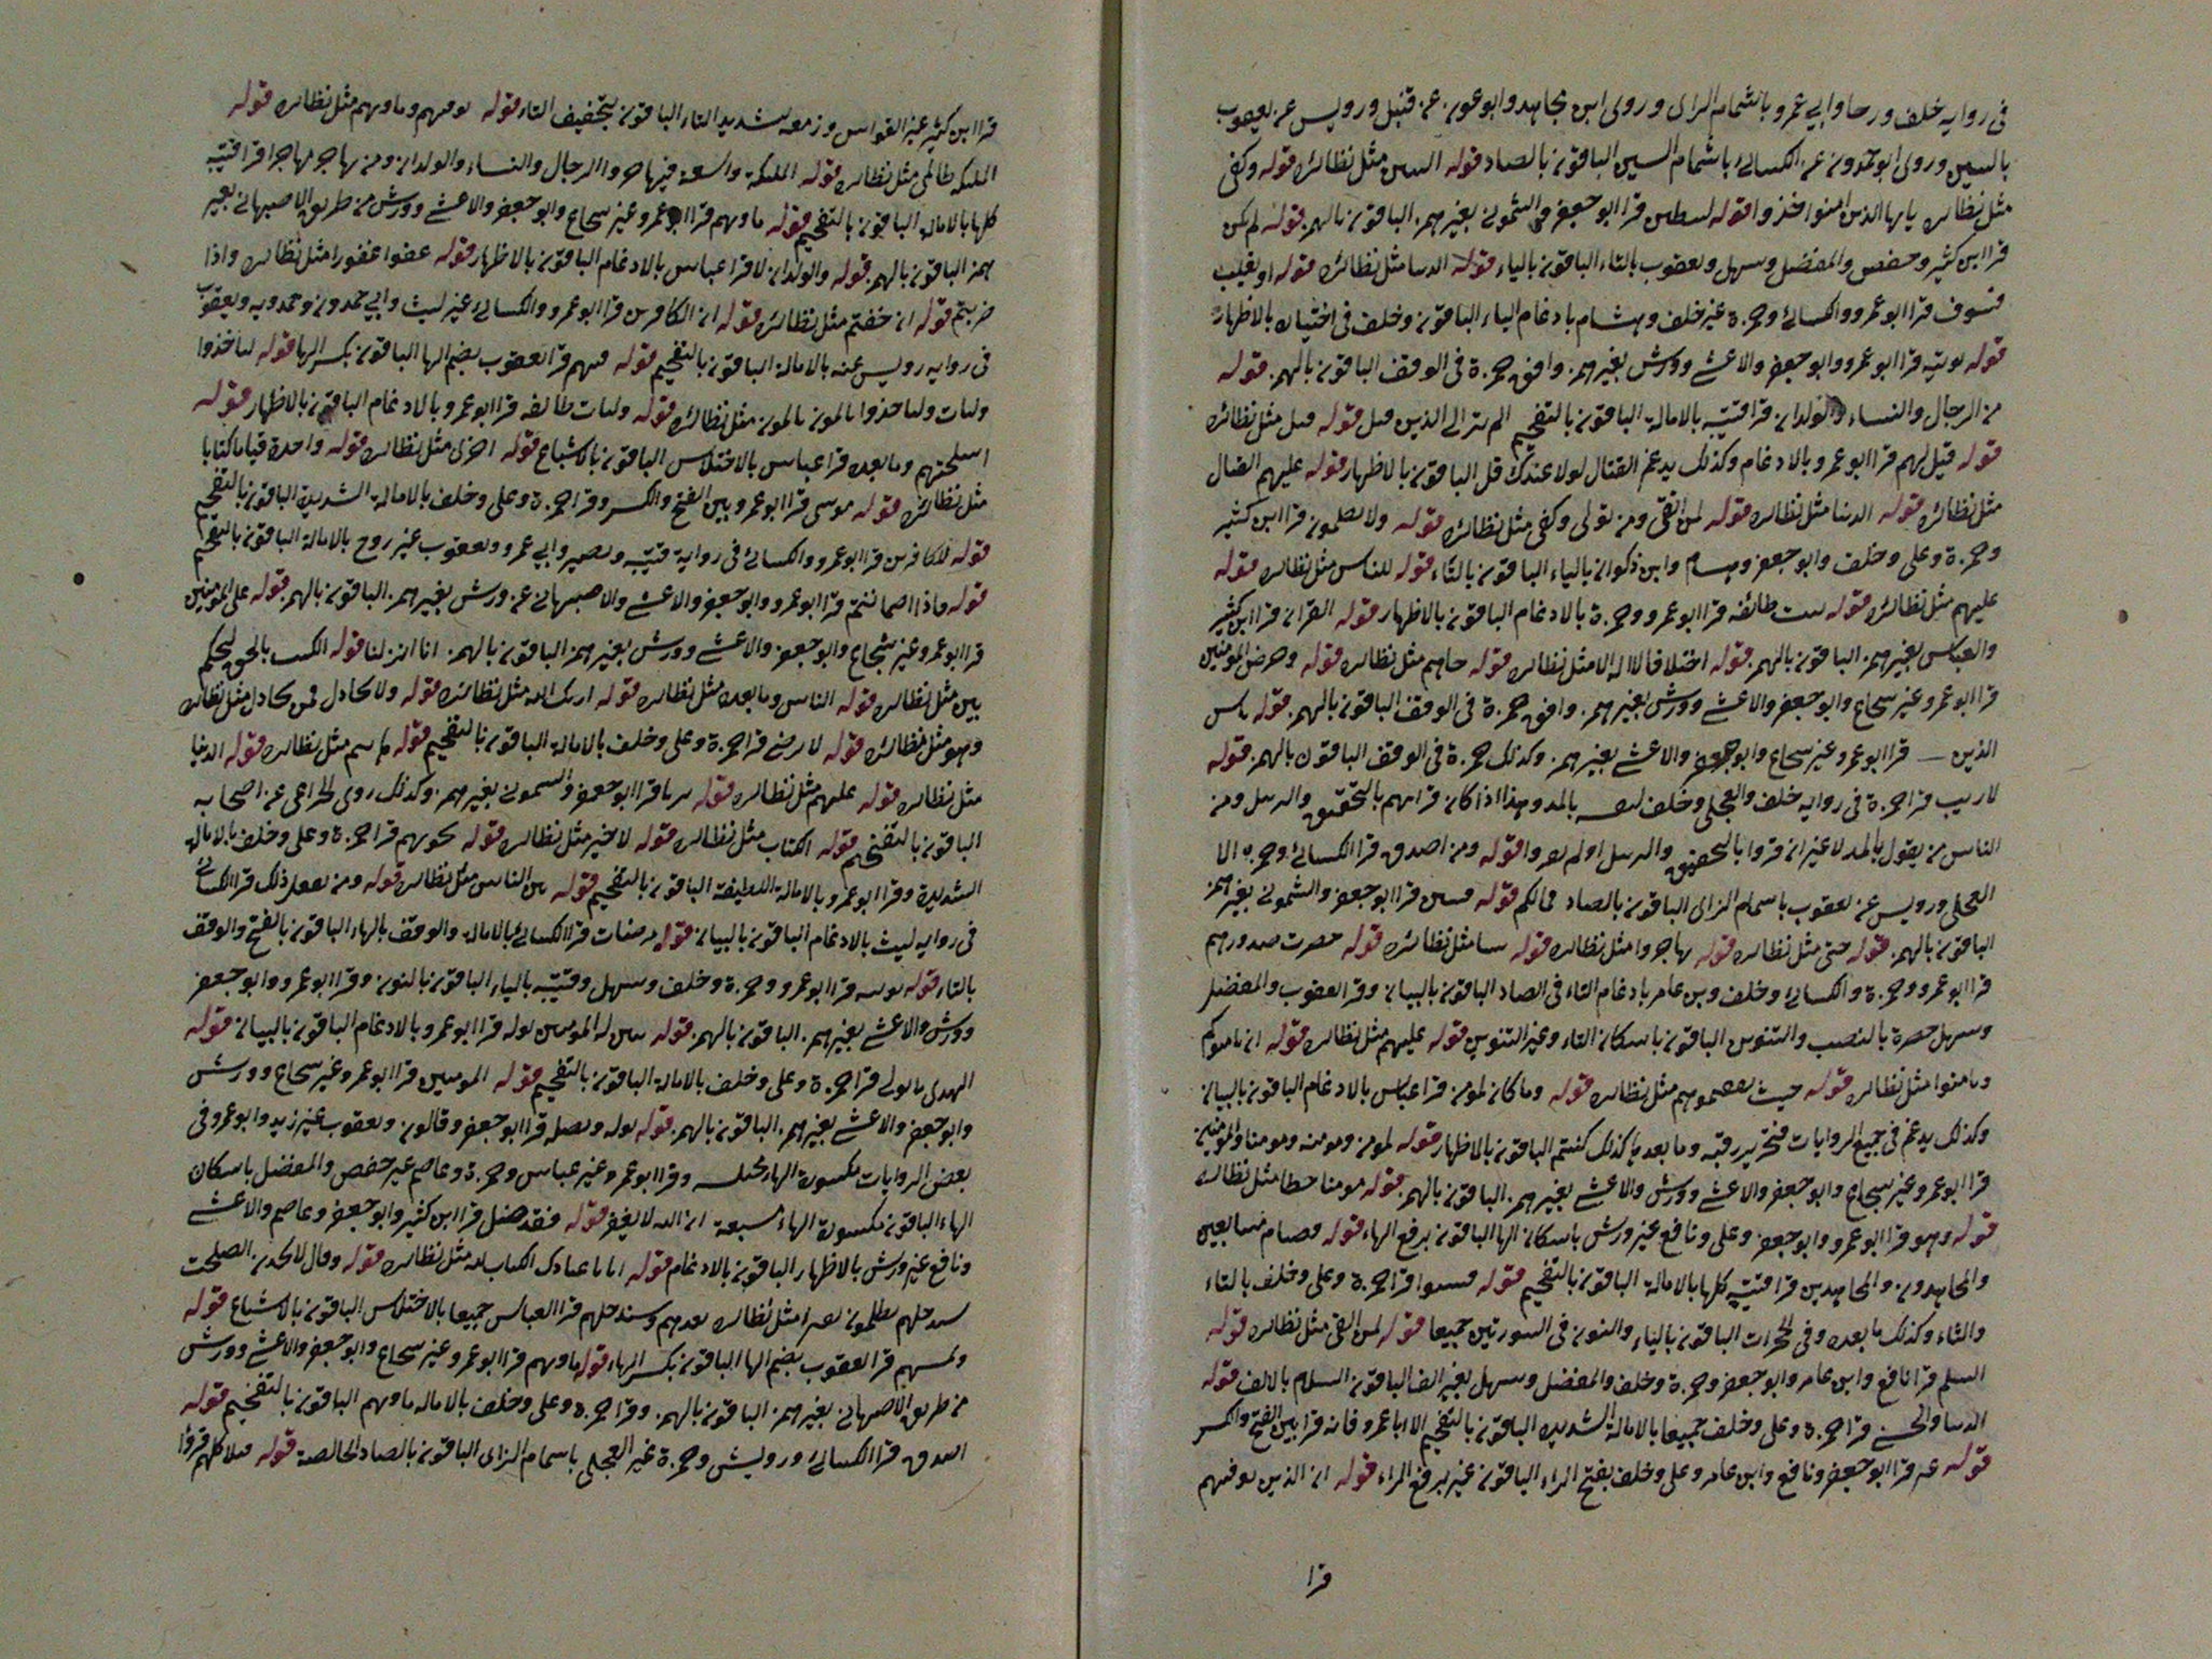 في رواية خلف ورحا وابي عمرو باشمام الزاى وروى ابن مجاهد وابو عون عن قنبل ورويس عن يعقوب
بالسين وروى ابو حمدون عن الكسائي باشمام السين الباقون بالصاد قوله الناس مثل نظائره قوله وكفى
مثل نظائره يايها الذين امنوا خذوا قوله لسطىں قرا ابو جعفر والشموني بغير همز الباقون بالهمز قوله لم ىكن
قرا ابن كثير وحفص والمفضل وسهل ويعقوب بالتاء الباقون بالياء قوله الدىىا مثل نظائره قوله او يغلب
فسوف قرا ابو عمرو والكسائي وحمزة غير خلف وهشام بادغام الباء الباقون وخلف في اختياره بالاظهار
قوله نوتيه قرا ابو عمرو وابو جعفر والاعشى وورش بغير همز وافق حمزة في الوقف الباقون بالهمز قوله
من الرجال والنساء والولدان قرا قتيبة بالامالة الباقون بالتفخيم الم تر الى الذين قيل قوله قيل مثل نظائره
قوله قيل لهم قرا ابو عمرو بالادغام وكذلك يدغم القتال لولا عندك قل الباقون بالاظهار قوله عليهم القىال
مثل نظائره قوله الدنيا مثل نظائره قوله لمن اتقى ومن تولى وكفى مثل نظائره قوله ولا يظلمون قرا ابن كثير
وحمزة وعلى وخلف وابو جعفر وهشام وابن ذكوان بالياء الباقون بالتاء قوله للناس مثل نظائره قوله
عليهم مثل نظائره قوله بيت طائفة قرا ابو عمرو وحمزة بالادغام الباقون بالاظهار قوله القران قرا ابن كثير
والعباس بغير همز الباقون بالهمز قوله اختلافا لا اله الا مثل نظائره قوله جاهم مثل نظائره قوله وحرض المومنين
قرا ابو عمرو غير شجاع وابو جعفر والاعشى وورش بغير همز وافق حمزة في الوقف الباقون بالهمز قوله باس
الذين قرا ابو عمرو غير شجاع وابو جعفر والاعشى بغير همز وكذلك حمزة في الوقف الباقون بالهمز قوله
لا ريب قرا حمزة في رواية خلف والعجلي وخلف لنفسه بالمد وهذا اذا كان قرائهم بالتحقيق والترسل ومن
الناس من يقول بالمد لا غير ان قروا بالتحقيق والترسل او لم يعروا قوله ومن اصدق قرا الكسائي وحمزة الا
العجلي ورويس عن يعقوب باشمام الزاى الباقون بالصاد فما لكم قوله فىتىن قرا ابو جعفر والشموني بغير همز
الباقون بالهمز قوله حتى مثل نظائره قوله يهاجروا مثل نظائره قوله شىا مثل نظائره قوله حصرت صدورهم
قرا ابو عمرو وحمزة والكسائي وخلف وبن عامر بادغام التاء في الصاد الباقون بالبيان وقرا يعقوب والمفضل
وسهل حصرة بالنصب والتنوين الباقون باسكان التاء وغير التنوين قوله عليهم مثل نظائره قوله ان يامنوكم
ويامنوا مثل نظائره قوله حيث ثقفتموهم مثل نظائره قوله وما كان لمومن قرا عباس بالادغام الباقون بالبيان
وكذلك يدغم في جميع الروايات فتحرير رقبه وما بعده كذلك كنتم الباقون بالاظهار قوله لمومن ومومنه ومومنا والمومنين
قرا ابو عمرو غير شجاع وابو جعفر والاعشى وورش والاعشى بغير همز الباقون بالهمز قوله مومنا خطا مثل نظائره
قوله وهو قرا ابو عمرو وابو جعفر وعلى ونافع غير ورش باسكان الها الباقون برفع الهاء قوله فصيام متتابعين
والمجاهدون والمجاهدين قرا قتيبة كلها بالامالة الباقون بالتفخيم قوله فىىىىوا قرا حمزة وعلى وخلف بالتاء
والثاء وكذلك ما بعده وفي الحجرات الباقون بالياء والنون في السورتين جميعا قوله لمن القى مثل نظائره قوله
السلم قرا نافع وابن عامر وابو جعفر وحمزة وخلف والمفضل وسهل بغير الف الباقون السلام بالالف قوله
الدىىا والحسنى قرا حمزة وعلى وخلف جميعا بالامالة الشديدة الباقون بالتفخيم الا ابا عمرو فانه قرا بين الفتح والكسر
قوله غير قرا ابو جعفر ونافع وابن عامر وعلى وخلف بفتح الراء الباقون غير برفع الراء قوله ان الذين توفيهم
قرا
قرا ابن كثير غير القواس وزمعه بتشديد التاء الباقون بتخفيف التاء قوله توفيهم وماويهم مثل نظائره قوله
الملىكه ظالمي مثل نظائره قوله الملىكة واسعة فيهاجروا الرجال والنساء والولدان ومن يهاجر مهاجرا قرا قتيبة
كلها بالامالة الباقون بالتفخيم قوله ماويهم قرا ابو عمرو غير شجاع وابو جعفر والاعشى وورش من طريق الاصبهاني بغير
همز الباقون بالهمز قوله والولدان لا قرا عباس بالادغام الباقون بالاظهار قوله عفوا غفورا مثل نظائره واذا
ضربتم قوله ان خفتم مثل نظائره قوله ان الكافرين قرا ابو عمرو والكسائي غير ليث وابي حمدون وحمدويه ويعقوب
في رواية رويس عنه بالامالة الباقون بالتفخيم قوله فيهم قرا يعقوب بضم الها الباقون بكسر الها قوله لىاخذوا
ولىات ولىاخذوا ىالمون ىالمون مثل نظائره قوله ولىات طائفه قرا ابو عمرو بالادغام الباقون بالاظهار قوله
اسلحتهم وما بعده قرا عباس بالاختلاس الباقون بالاشباع قوله اخرى مثل نظائره قوله واحدة قياما كتابا
مثل نظائره قوله موسى قرا ابو عمرو بين الفتح والكسر وقرا حمزة وعلى وخلف بالامالة الشديدة الباقون بالتفخيم
قوله للكافرين قرا ابو عمرو والكسائي في رواية قتيبة ونصير وابي عمرو ويعقوب غير روح بالامالة الباقون بالتفخيم
قوله فاذا اطماننتم قرا ابو عمرو وابو جعفر والاعشى والاصبهاني عن ورش بغير همز الباقون بالهمز قوله على المومنين
قرا ابو عمرو غير شجاع وابو جعفر والاعشى وورش بغير همز الباقون بالهمز انا انزلنا قوله الكتب بالحق لتحكم
بين مثل نظائره قوله الناس وما بعده مثل نظائره قوله اريك الله مثل نظائره قوله ولا تجادل فمن يجادل مثل نظائره
وهو مثل نظائره قوله لا يرضى قرا حمزة وعلى وخلف بالامالة الباقون بالتفخيم قوله هانتم مثل نظائره قوله الدنيا
مثل نظائره قوله عليهم مثل نظائره قوله برىا قرا ابو جعفر والشموني بغير همز وكذلك روى الخزاعي عن اصحابه
الباقون بالتفخيم قوله الكتاب مثل نظائره قوله لا خير مثل نظائره قوله نجويهم قرا حمزة وعلى وخلف بالامالة
الشديدة وقرا ابو عمرو بالامالة اللطيفة الباقون بالتفخيم قوله بين الناس مثل نظائره قوله ومن يفعل ذلك قرا الكسائي
في رواية ليث بالادغام الباقون بالبيان قوله مرضات قرا الكسائي بالامالة والوقف بالهاء الباقون بالفتح والوقف
بالتاء قوله نوتيه قرا ابو عمرو وحمزة وخلف وسهل وقتيبة بالياء الباقون بالنون وقرا ابو عمرو وابو جعفر
وورش والاعشى بغير همز الباقون بالهمز قوله تبين له المومنين نوله قرا ابو عمرو بالادغام الباقون بالبيان قوله
الهدى ماتولى قرا حمزة وعلى وخلف بالامالة الباقون بالتفخيم قوله المومنين قرا ابو عمرو غير شجاع وورش
وابو جعفر والاعشى بغير همز الباقون بالهمز قوله نوله ونصله قرا ابو جعفر وقالون ويعقوب غير زيد وابو عمرو في
بعض الروايات مكسورة الهاء مختلسه وقرا ابو عمرو غير عباس وحمزة وعاصم غير حفص والمفضل باسكان
الهاء الباقون مكسورة الهاء مشبعة ان الله لا يغفر قوله فقد ضل قرا ابن كثير وابو جعفر وعاصم والاعشى
ونافع غير ورش بالاظهار الباقون بالادغام قوله اناثا عبادك الكتاب لله مثل نظائره قوله وقال لاتخذن الصلحت
سندخلهم يظلمون نصيرا مثل نظائره يعدهم وسندخلهم قرا العباس جميعا بالاختلاس الباقون بالاشباع قوله
ويمنيهم قرا يعقوب بضم الها الباقون بكسر الهاء قوله ماويهم قرا ابو عمرو غير شجاع وابو جعفر والاعشى وورش
من طريق الاصبهاني بغير همز الباقون بالهمز وقرا حمزة وعلى وخلف بالامالة ماويهم الباقون بالتفخيم قوله
اصدق قرا الكسائي ورويس وحمزة غير العجلي باشمام الزاى الباقون بالصاد الخالصة قوله